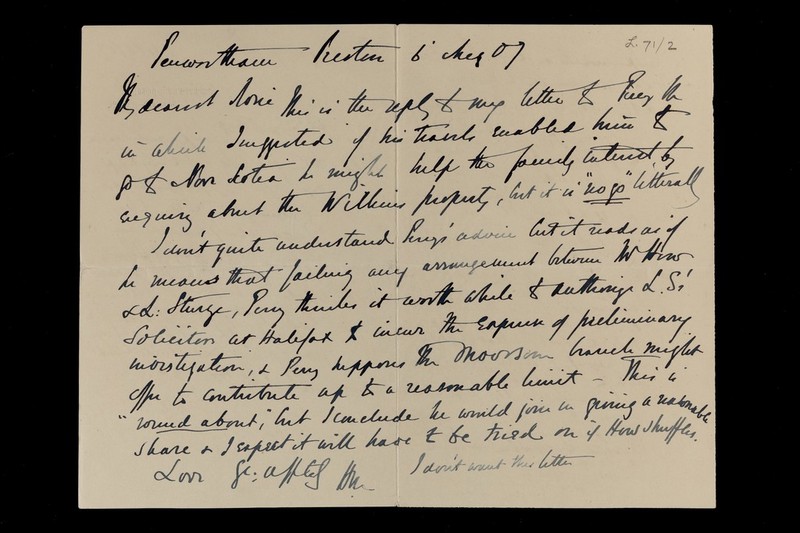 L. 71/2
Penwortham Preston 6 Aug 07
My dearest Rosie This is the reply to my letter to Percy M
in which I suggested if his travels enabled him to
go to Nova Scotia he might help the family interest by
enquiring about the Wilkins property, but it is "no go" litterally
I don't quite understand Percy's advice but it reads as if
he means that failing any arrangement between W How
& L: Sturge, Percy thinks it worth while to authorize L.S's
Solicitors at Halifax to incur the expense of preliminary
investigation, & Percy supposes the Moorsom branch might
offer to contribute up to a reasonable limit – This is
"round about," but I conclude he would join in giving a reasonable
share & I expect it will have to be tried on if How shuffles.
Love &c: affly
I don't want this letter